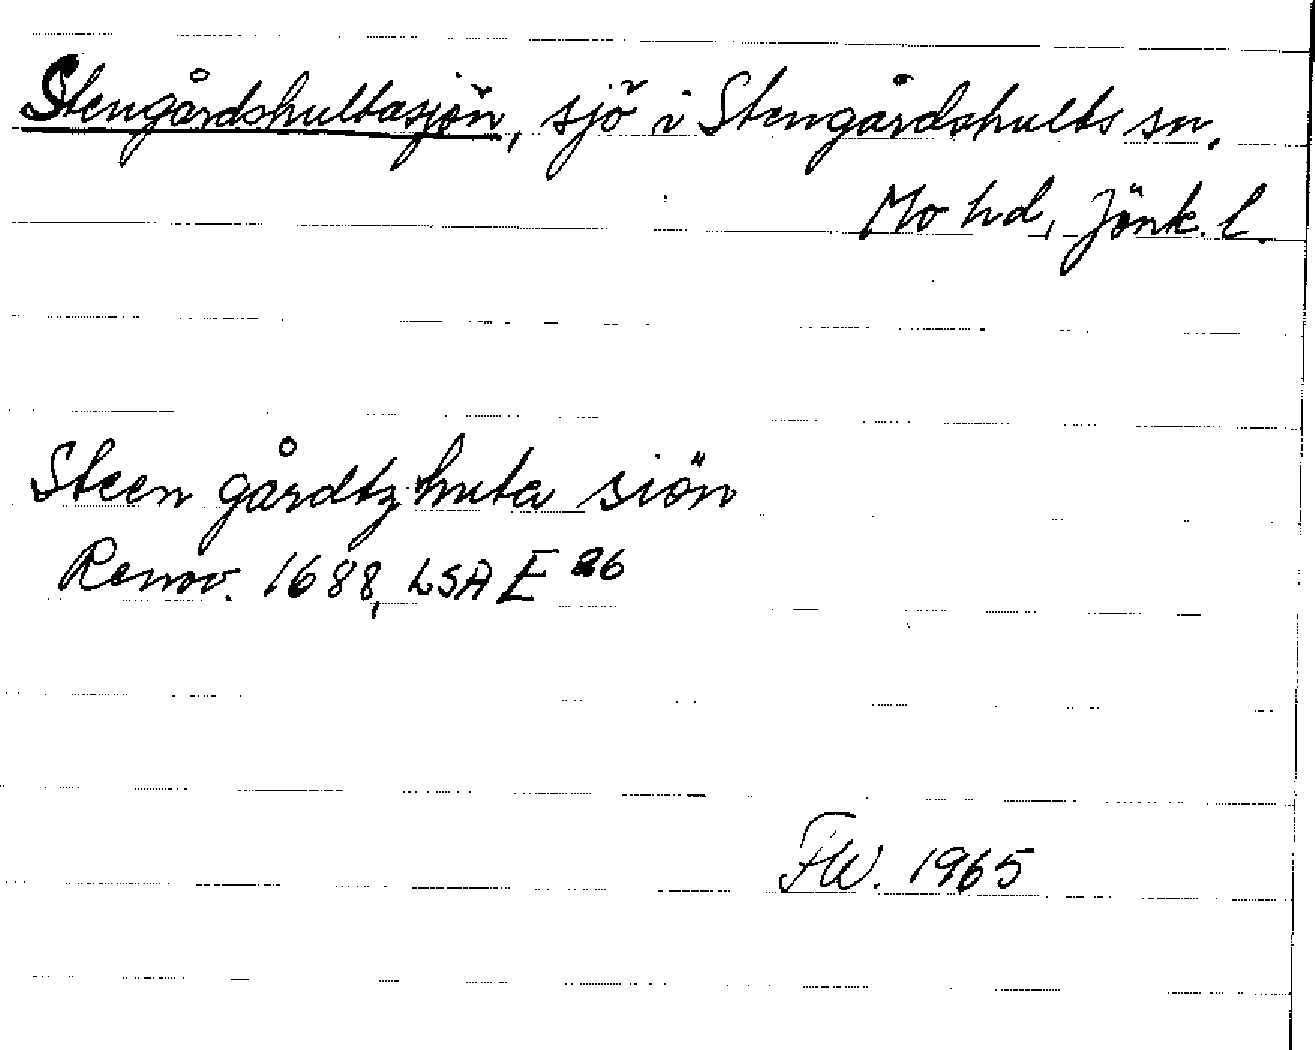 Stengårdshultasjön, sjö i Stengårdshults sn.
Mo hd, Jönk. l.
Steen gårdtz huta siön
Renov. 1688, LSA E 26
FW. 1965